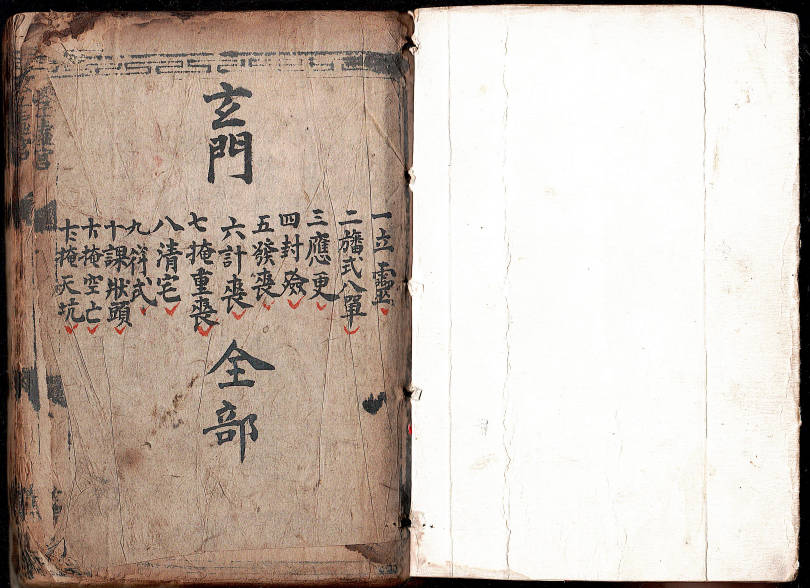 玄門
一立靈
二旛式八單
三應更
四封殮
五發喪
六計喪
七掩重喪
八清宅
九符式
十課狀頭
十一掩空亡
十二掩天坑
全部